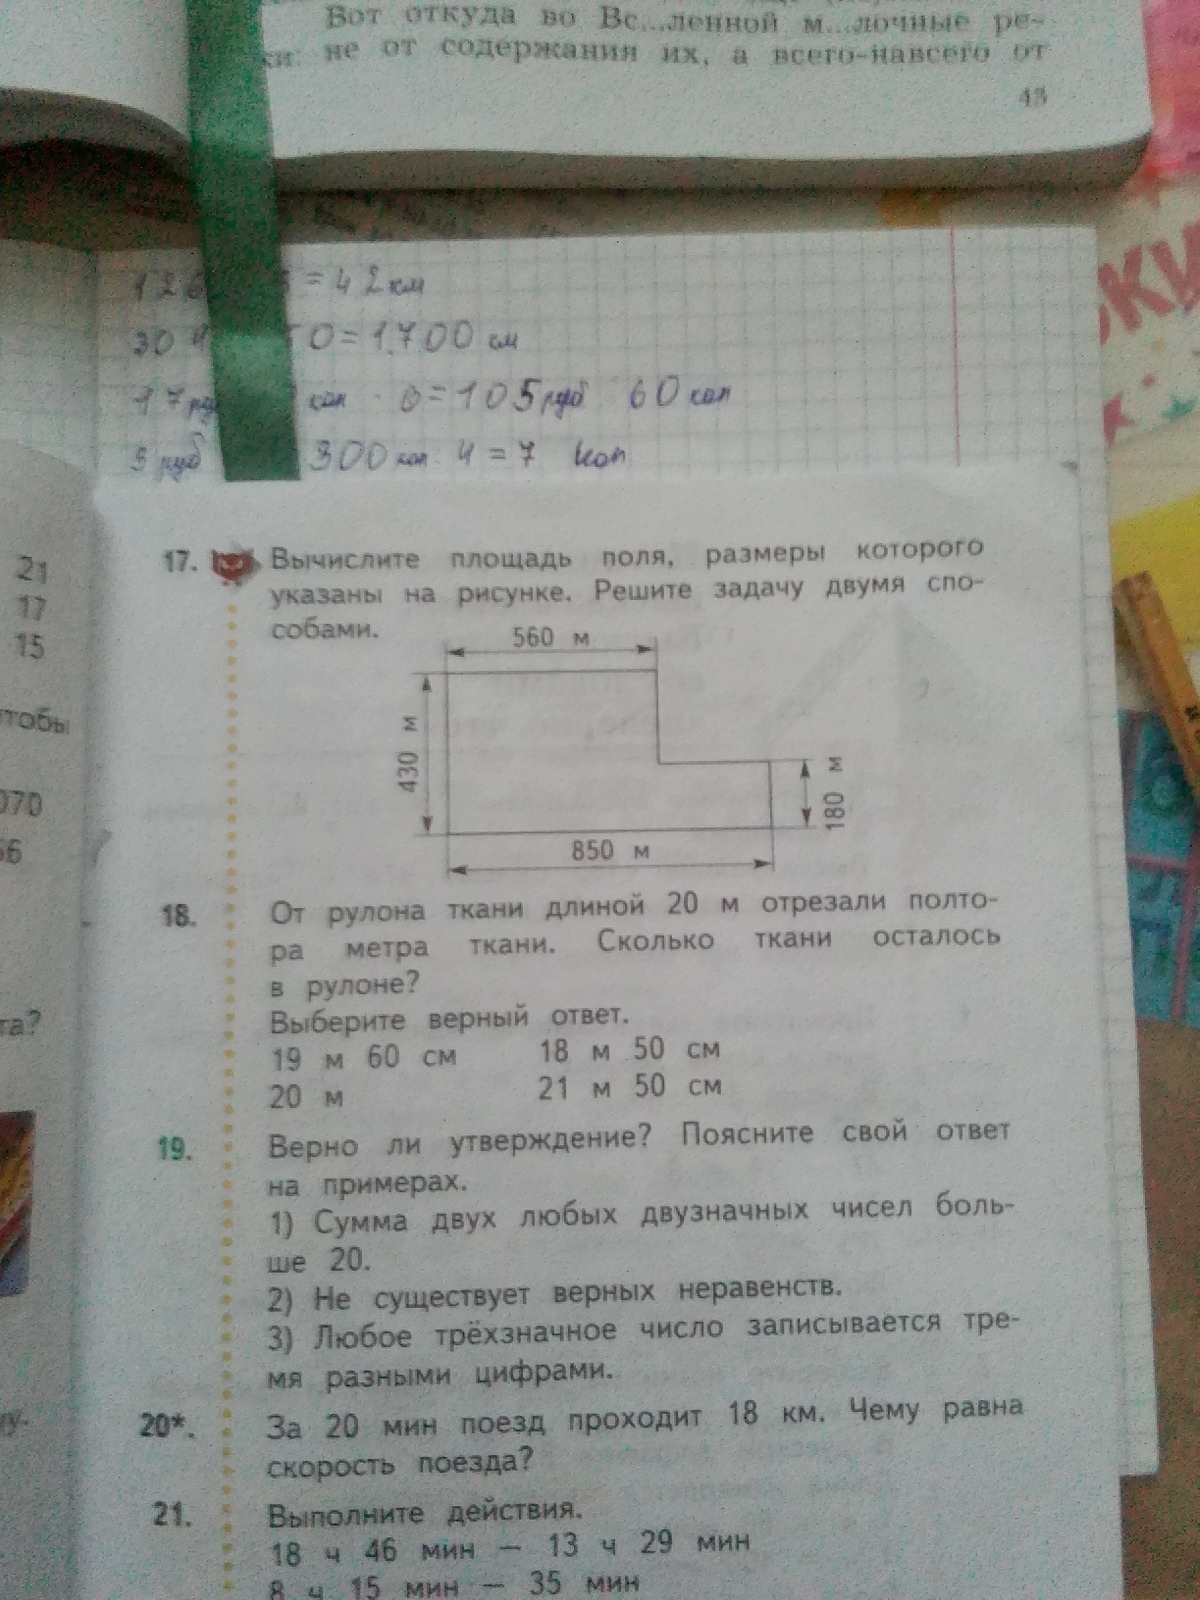 Вот откуда во Вс...ленной м...лочные ре-
ки: не от содержания их, а всего-навсего от
43
= 42 км
0 = 1700 см
коп · 6 = 105 руб 60 коп
3 руб 300 коп : 4 = 7 коп
21
17
15
чтобы
070
56
та?
17. Вычислите площадь поля, размеры которого
указаны на рисунке. Решите задачу двумя спо-
собами.
560 м
430 м
180 м
850 м
18. От рулона ткани длиной 20 м отрезали полто-
ра метра ткани. Сколько ткани осталось
в рулоне?
Выберите верный ответ.
19 м 60 см 18 м 50 см
20 м 21 м 50 см
19. Верно ли утверждение? Поясните свой ответ
на примерах.
1) Сумма двух любых двузначных чисел боль-
ше 20.
2) Не существует верных неравенств.
3) Любое трёхзначное число записывается тре-
мя разными цифрами.
20*. За 20 мин поезд проходит 18 км. Чему равна
скорость поезда?
21. Выполните действия.
18 ч 46 мин — 13 ч 29 мин
8 ч 15 мин — 35 мин